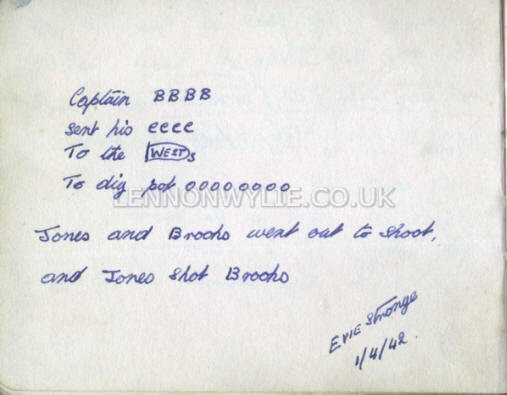 Captain BBBB
sent his eeee
To the WEST s
To dig pot oooooooo
LENNONWYLIE.CO.UK
Jones and Brooks went out to shoot,
and Jones shot Brooks
EVIE Stronge
1/4/42.